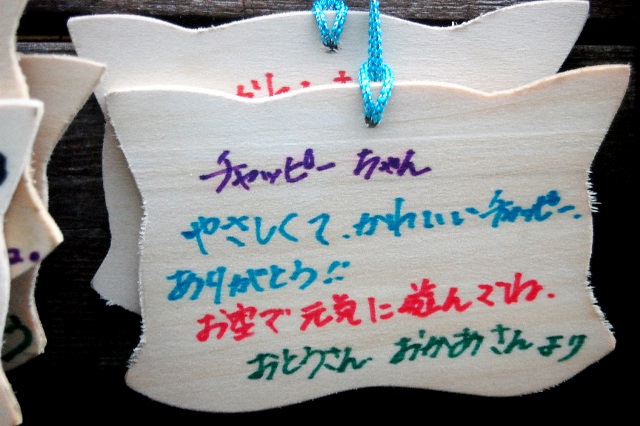 チャッピー ちゃん
やさしくて、かわいいチャッピー、
ありがとう!!
お空で元気に遊んでね、
おとうさん おかあさんより